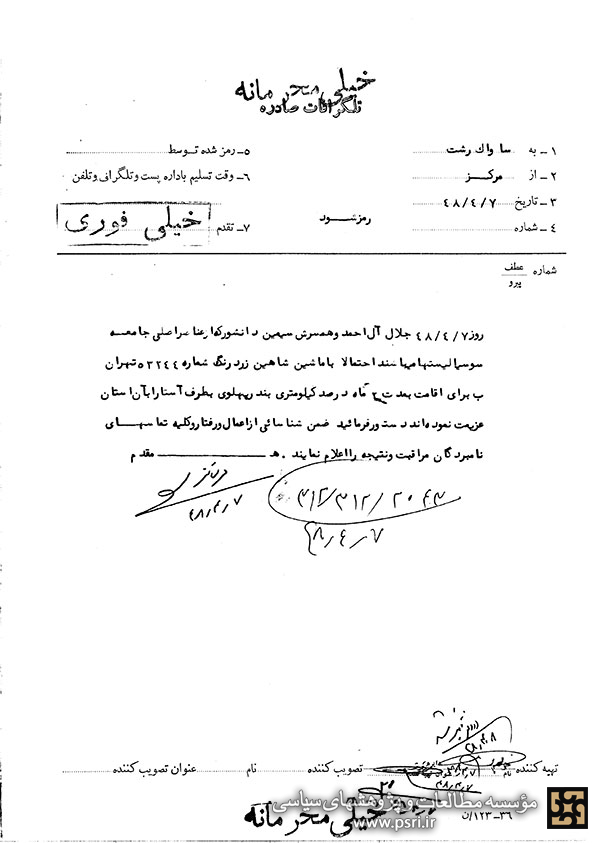 خیلی محرمانه
تلگرافات صادره
۱ـ به ساواک رشت
۲ـ از مرکز
۳ـ تاریخ ۴۸/۴/۷
۴ـ شماره
رمز شود
۵ـ رمز شده توسط
۶ـ وقت تسلیم باداره پست و تلگرافی و تلفن
۷ـ تقدم خیلی فوری
شماره عطف
پیرو
روز ۴۸/۴/۷ جلال آل احمد و همسرش سیمین دانشور که از عناصر اصلی جامعه
سوسیالیستها میباشند احتمالا با ماشین شاهین زرد رنگ شماره ۵۳۲۴۴ تهران
ب برای اقامت بمدت ۲ ماه در صد کیلومتری بندر پهلوی بطرف آستارا بآن استان
عزیمت نموده اند دستور فرمائید ضمن شناسائی از اعمال و رفتار و کلیه تماسهای
نامبردگان مراقبت و نتیجه را اعلام نمایند . هـ مقدم
۳۱۲/۳۱۲/۲۰۴۳
۴۸/۴/۷
۴۸/۴/۷
۴۸/۴/۸
تهیه کننده نام تصویب کننده نام عنوان تصویب کننده
خیلی محرمانه
۳۶ـ۱۲۳/ن
مؤسسه مطالعات و پژوهشهای سیاسی
www.psri.ir